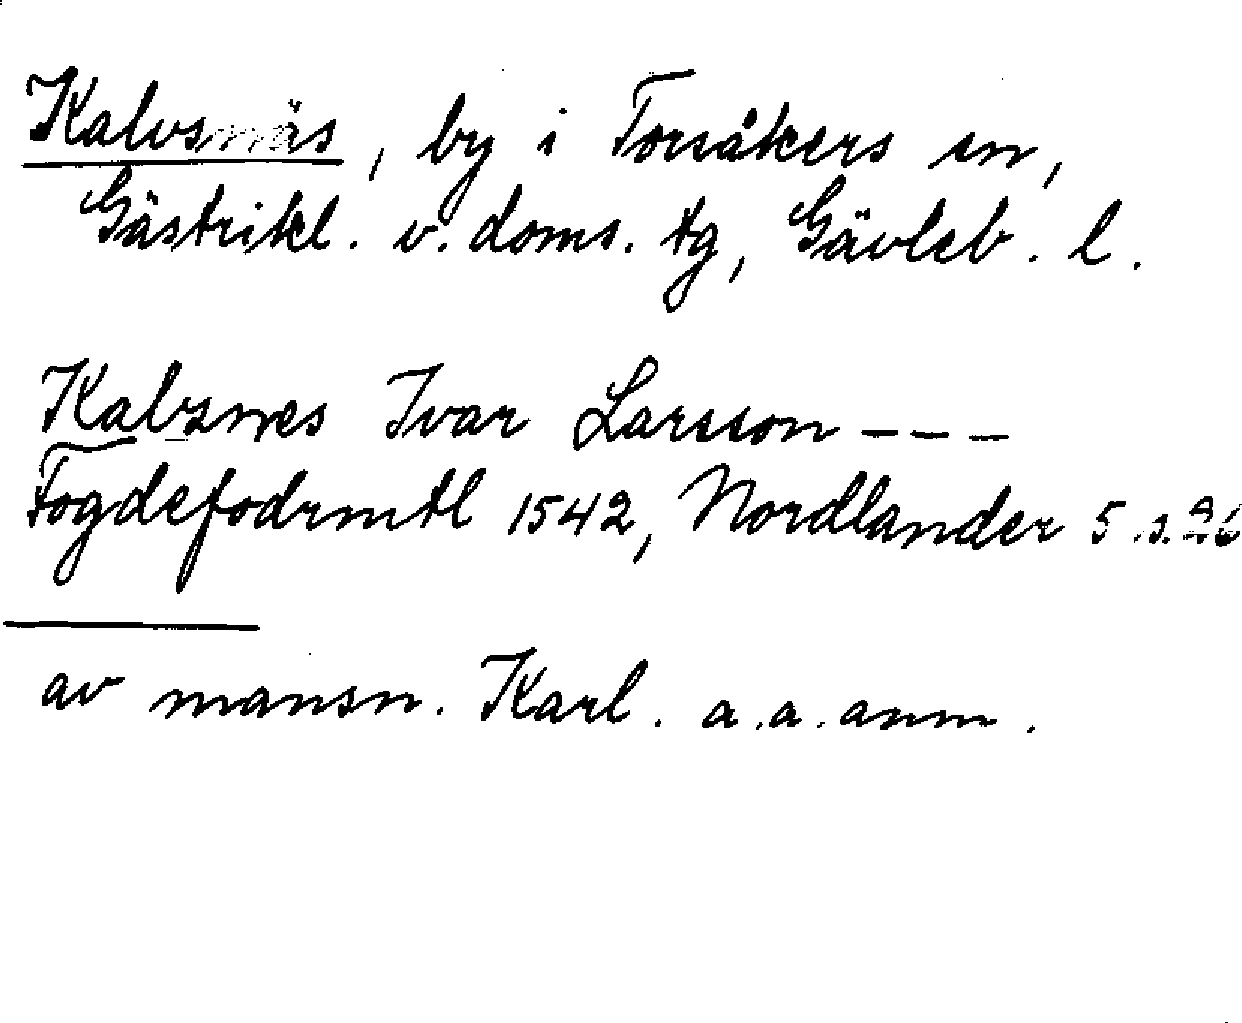 Kalvsnäs, by i Torsåkers sn,
Gästrikl. v. doms. tg, Gävleb. l.
Kalznes Ivar Larsson - - -
Fogdefodrmtl 1542, Nordlander 5. s. 96
av mansn. Karl. a.a. anm.